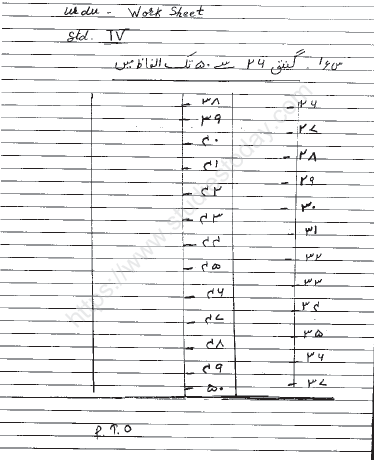 Urdu - Work Sheet
Std. IV
گنتی ۲۶ سے ۵۰ تک الفاظ میں
۲۶
۲۷
۲۸
۲۹
۳۰
۳۱
۳۲
۳۳
۳۴
۳۵
۳۶
۳۷
۳۸
۳۹
۴۰
۴۱
۴۲
۴۳
۴۴
۴۵
۴۶
۴۷
۴۸
۴۹
۵۰
P.T.O
https://www.studiestoday.com